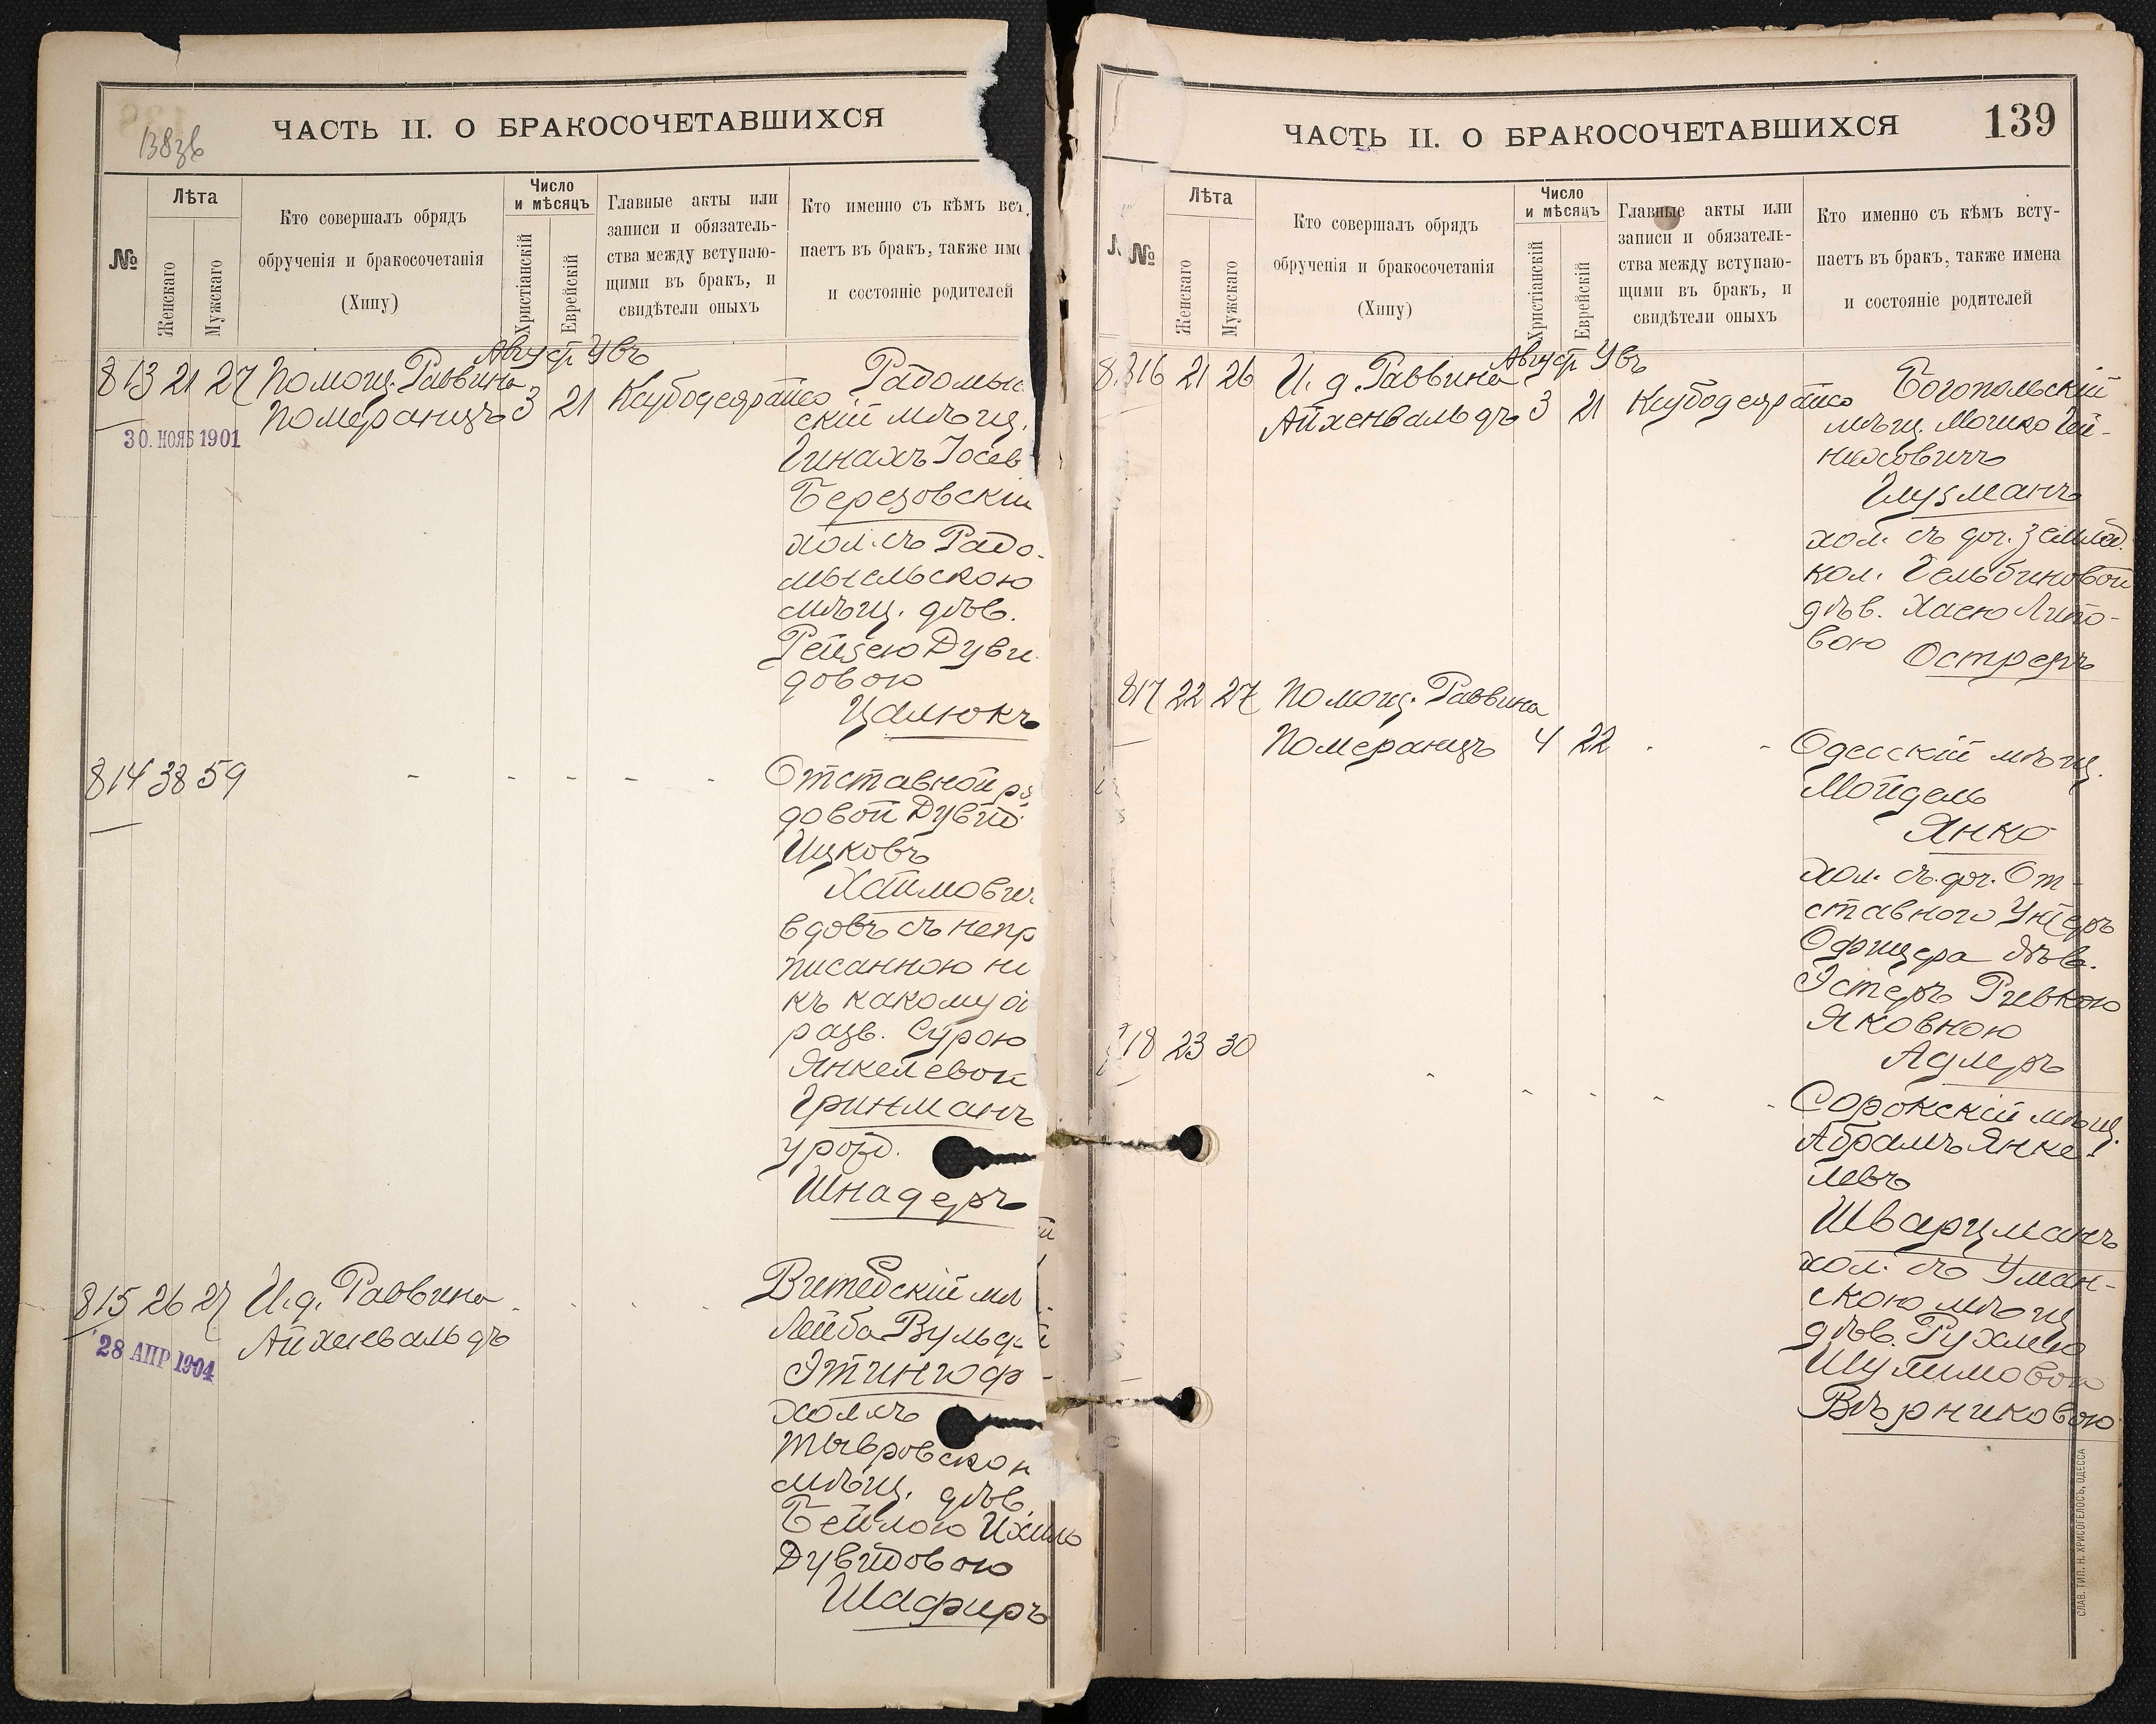 138зв
ЧАСТЬ II. О БРАКОСОЧЕТАВШИХСЯ
№
Лѣта
Женскаго
Мужскаго
Кто совершалъ обрядъ
обрученія и бракосочетанія
(Хипу)
Число
и мѣсяцъ
Христіанскій
Еврейскій
Главные акты или
записи и обязатель-
ства между вступаю-
щими въ бракъ, и
свидѣтели оныхъ
Кто именно съ кѣмъ вст
паетъ въ бракъ, также име
и состояніе родителей
Август Увъ
813 21 27 Помощ. Раввина
Померанцъ 3 21
30. НОЯБ 1901
Радомы
скій мѣщ.
Гинахъ Іосев
Березовскі
хол. съ Радо-
мысльскою
мѣщ. дѣв.
Рейзею Дуви
довою
Цалюкъ
814 38 59 - - - - -
Отставной ря
довой Дувид
Ицковъ
Хаимович
вдовъ съ непр
писанною ни
къ какому о
разв. Сурою
Янкелевою
Гринманъ
урожд.
Шнадеръ
815 26 27 И. д. Раввина
Айхенвальдъ
28 АПР 1904
Витебскій мѣ
Лейба Вульф
Этингоф
хол. съ
Тывровскою
мѣщ. дѣв.
Бейлою Ихиль
Дувидовою
Шафиръ
ЧАСТЬ II. О БРАКОСОЧЕТАВШИХСЯ
139
№
Лѣта
Женскаго
Мужскаго
Кто совершалъ обрядъ
обрученія и бракосочетанія
(Хипу)
Число
и мѣсяцъ
Христіанскій
Еврейскій
Главные акты или
записи и обязатель-
ства между вступаю-
щими въ бракъ, и
свидѣтели оныхъ
Кто именно съ кѣмъ всту-
паетъ въ бракъ, также имена
и состояніе родителей
Август Увъ
816 21 26 И. д. Раввина
Айхенвальдъ 3 21
Богопольскій
мѣщ. Мошко Гей-
ниховичъ
Глузманъ
хол. съ доч. землед.
кол. Гельбиновой
дѣв. Хаею Липо-
вою
Остреръ
817 22 27 Помощ. Раввина
Померанцъ 4 22 - -
Одесскій мѣщ.
Мойдель
Янко
хол. съ доч. От-
ставного Унтеръ
Офицера дѣв.
Эстеръ Ривкою
Яковною
Адлеръ
818 23 30 - - - - -
Сорокскій мѣщ.
Абрамъ Янке-
левъ
Шварцманъ
хол. съ Уман-
скою мѣщ
дѣв. Рухлею
Шулимовою
Вѣрниковою
СЛАВ. ТИП. Н. ХРИСОГЕЛОСЪ, ОДЕССА